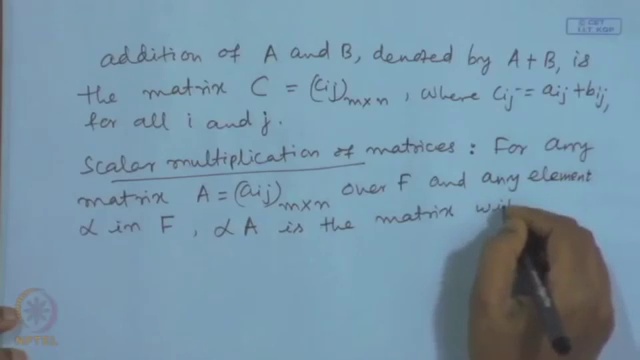 © CET
I.I.T. KGP
addition of A and B, denoted by A + B, is
the matrix C = (cij)m×n, where cij = aij + bij,
for all i and j.
Scalar multiplication of matrices : For any
matrix A = (aij)m×n over F and any element
α in F, αA is the matrix wi
NPTEL